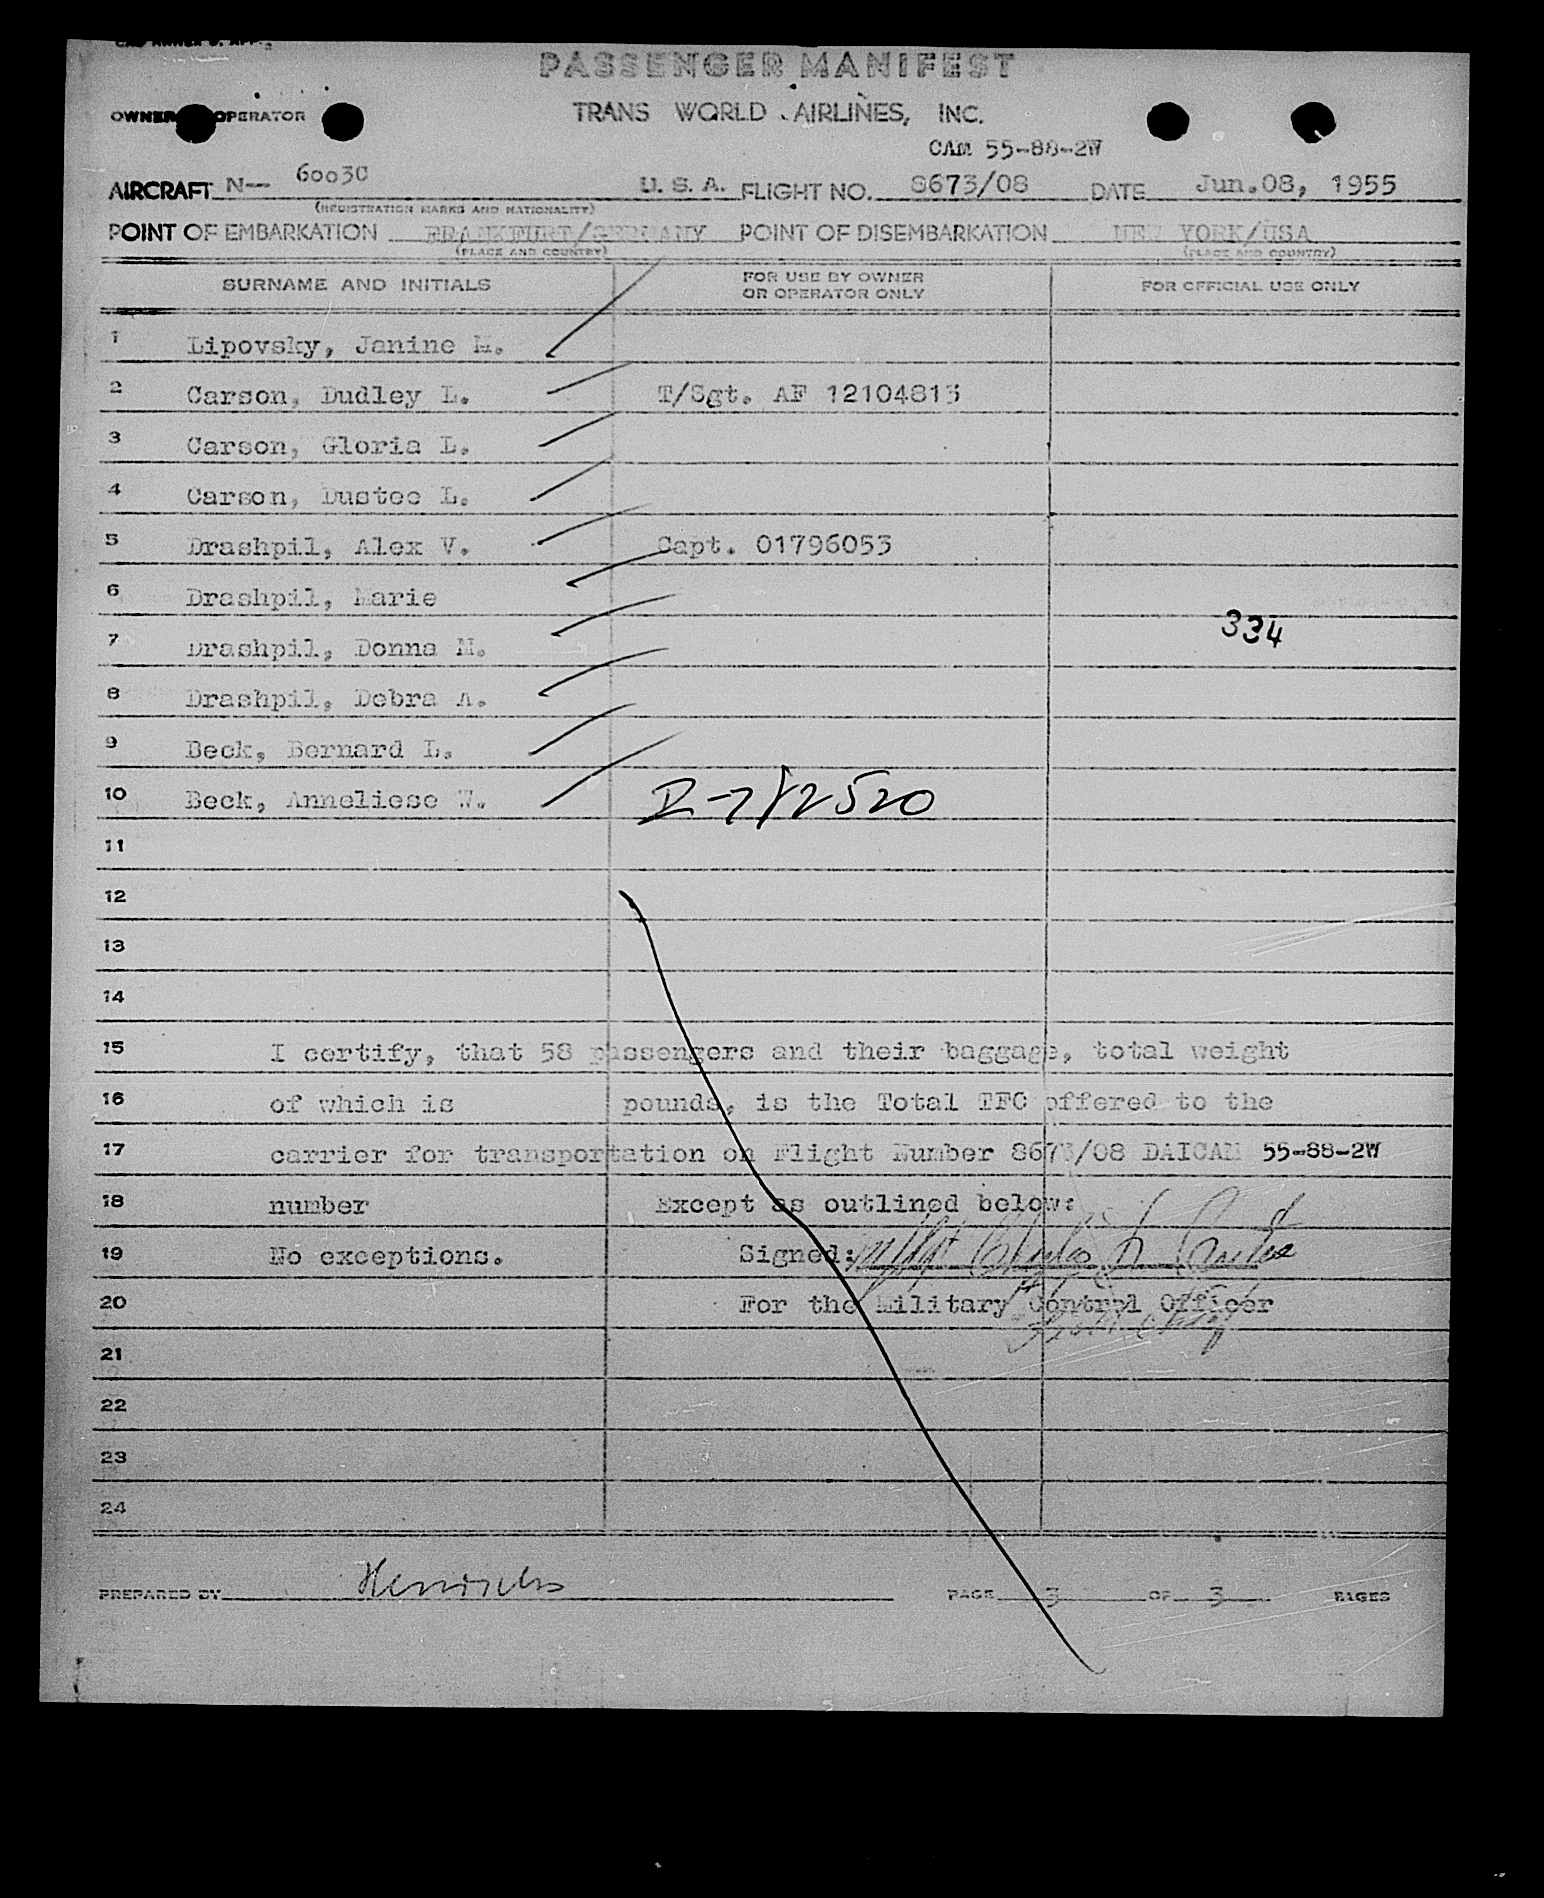 PASSENGER MANIFEST
OWNER OPERATOR
TRANS WORLD AIRLINES, INC.
CAM 55-88-2W
AIRCRAFT N-- 6003C U. S. A. FLIGHT NO. 8673/08 DATE Jun.08, 1955
(REGISTRATION MARKS AND NATIONALITY)
POINT OF EMBARKATION FRANKFURT/GERMANY POINT OF DISEMBARKATION NEW YORK/USA
(PLACE AND COUNTRY) (PLACE AND COUNTRY)
SURNAME AND INITIALS FOR USE BY OWNER OR OPERATOR ONLY FOR OFFICIAL USE ONLY
1 Lipovsky, Janine M.
2 Carson, Dudley L. T/Sgt. AF 12104813
3 Carson, Gloria L.
4 Carson, Dustee L.
5 Drashpil, Alex V. Capt. 01796053
6 Drashpil, Marie
334
7 Drashpil, Donna M.
8 Drashpil, Debra A.
9 Beck, Bernard L.
10 Beck, Anneliese W.
11
12
13
14
15 I certify, that 58 passengers and their baggage, total weight
16 of which is pounds, is the Total TFC offered to the
17 carrier for transportation on Flight Number 8673/08 DAICAM 55-88-2W
18 number Except as outlined below:
19 No exceptions. Signed:
20 For the Military Control Officer
21
22
23
24
PREPARED BY PAGE 3 OF 3 PAGES